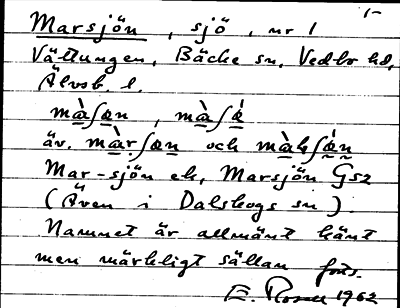 Marsjön, sjö, nr 1
Vättungen, Bäcke sn, Vedbo hd,
Älvsb. l.
mà̱ʃæ̱n, mà̱ʃǽ̱
äv. mà̱rʃæ̱n och mà̱ʃæ̃n
Mar-sjön ek, Marsjön Gsz
(Även i Dalskogs sn).
Namnet är allmänt känt
men märkligt sällan
E. Rosell 1962